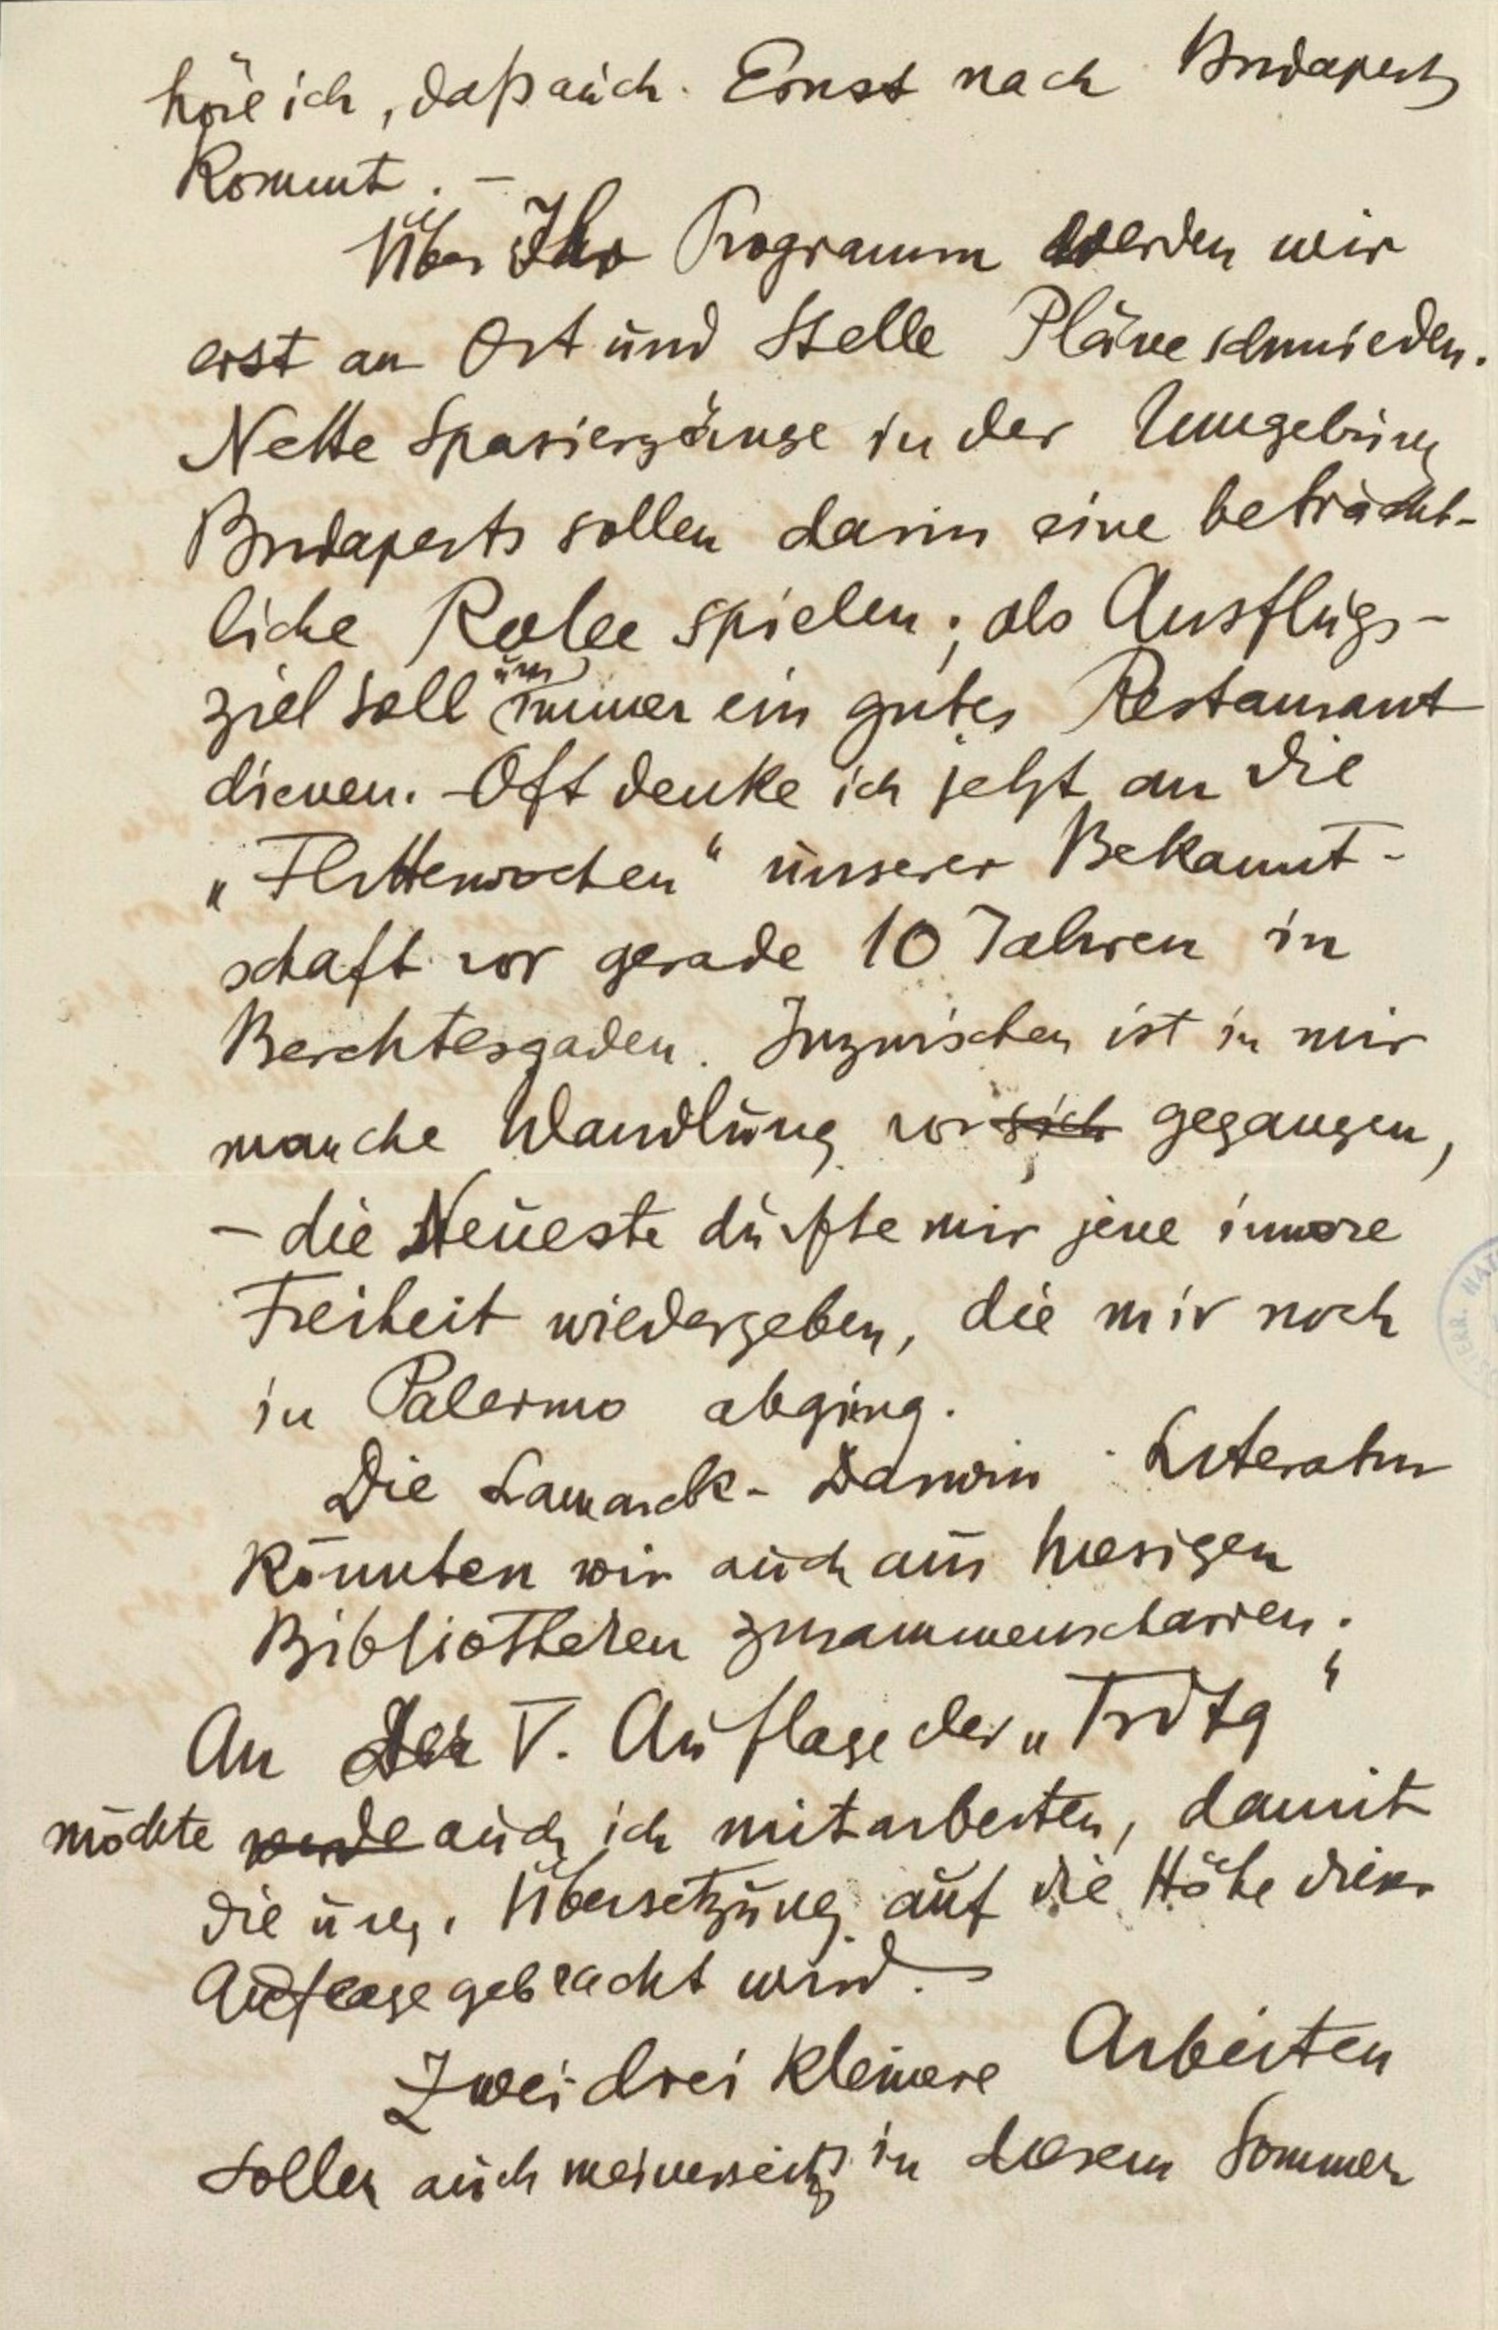 höre ich, daß auch Ernst nach Budapest
kommt. –
Über Ihr Programm werden wir
erst an Ort und Stelle Pläne schmieden.
Nette Spaziergänge in der Umgebung
Budapests sollen darin eine beträcht-
liche Rolle spielen; als Ausflugs-
ziel soll uns immer ein gutes Restaurant
dienen. – Oft denke ich jetzt an die
„Flitterwochen“ unserer Bekannt-
schaft vor gerade 10 Jahren in
Berchtesgaden. Inzwischen ist in mir
manche Wandlung vor sich gegangen,
– die Neueste dürfte mir jene innere
Freiheit wiedergeben, die mir noch
in Palermo abging.
Die Lamarck-Darwin Literatur
könnten wir auch aus hiesigen
Bibliotheken zusammenscharren.
An der V. Auflage der „Trdtg“
möchte werde auch ich mitarbeiten, damit
die ung. Übersetzung auf die Höhe dieser
Auflage gebracht wird. –
Zwei drei kleinere Arbeiten
sollen auch meinerseits in diesem Sommer